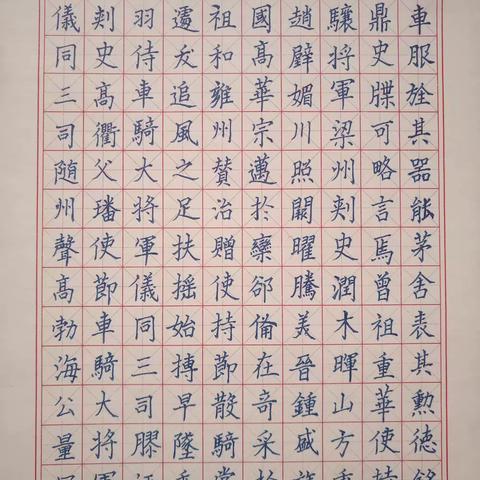 車服旌其器能茅舍表其勳德銘
鼎史牒可略言焉曾祖重華使持
驤將軍梁州刾史潤木暉山方重
趙璧媚川照闕曜騰美晉鍾盛族
國高華宗邁於欒郤俻在奇采於
祖和雍州贊治贈使持節散騎常
追風之足扶摇始摶早墜
羽侍車騎大將軍儀同三司膠
刾史高衢父璠使節車騎大將軍
儀同三司随州聲高勃海公量